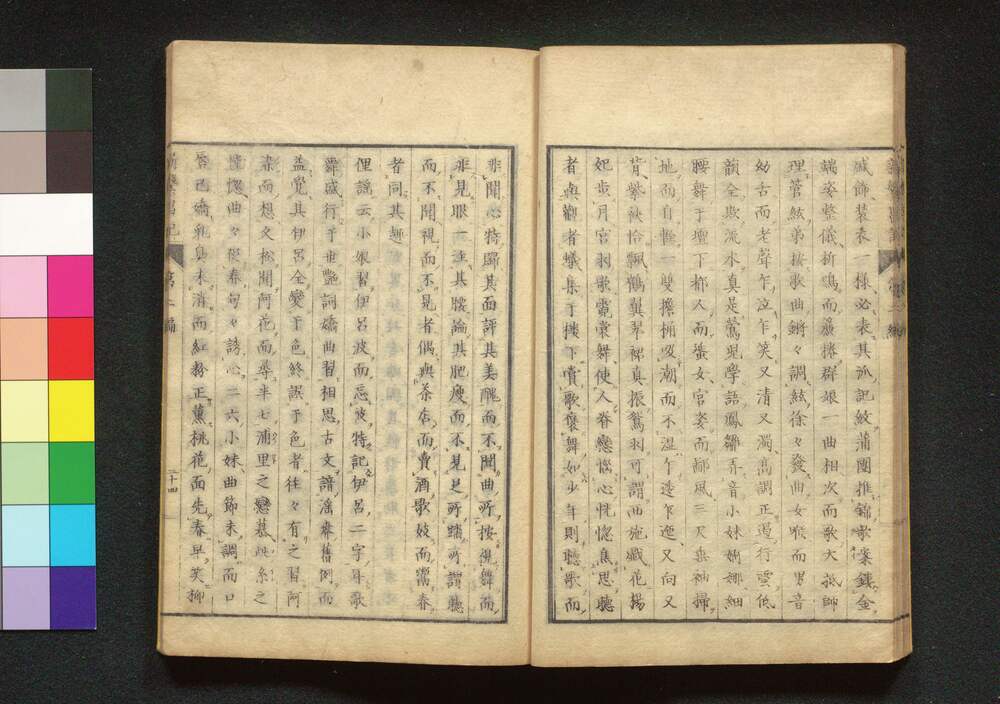 絨飾装表一様必表其派記紋蒲團推錦歌案鏤金
端姿整儀折鳴而簾捲群娘一曲相次而歌大抵師
理管絃弟按歌曲鏘々調絃徐々發曲女喉而男音
幼舌而老聲乍泣乍笑又清又濁高調正遏行雲低
韻全欺流水真是鶯児學語鳳雛弄音小妹婀娜細
腰舞于壇下都人而蜑女官姿而鄙風三尺垂袖掃
地而自軽一雙擔桶汲潮而不濕乍送乍迎又向又
背紫袂恰飄鶴翼翠裨真振鷺羽可謂西施戯花楊
妃歩月宮羽歌霓裳舞使人脊戀惱心恍惚焦思聽
者與觀者蟻集于楼下賣歌褒舞如少年則聽歌而
非聞心特歸其面評其美醜而不聞曲所按視舞而
非見眼一注其腰論其肥痩而不見足所踏所謂聽
而不聞視而不見者偶與茶店而賣酒歌妓而鬻春
者同其趣
俚謡云小娘習伊呂波而忘波特記伊呂二字耳歌
舞盛行于世艶詞嬌曲習相思古文諳淫奔舊例而
益覺其伊呂全變于色終誤于色者往々有之習阿
染而想文松聞阿花而尋半七浦里之戀慕絲之
憧憬曲々促春句々誘心二六小妹曲節未調而口
唇已嬌乳臭未消而紅粉正薫桃花面先春早笑柳
第二編
二十四